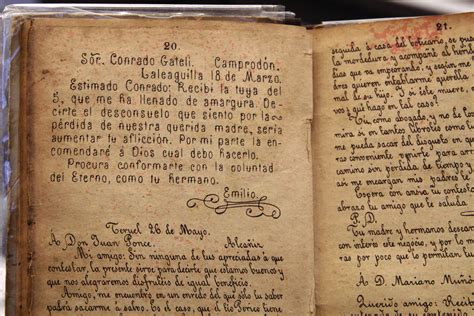 20.
Sor. Conrado Gateli. Camprodón.
Laleaguilla 18 de Marzo.
Estimado Conrado: Recibí la tuya del
5, que me ha llenado de amargura. De-
cirte el desconsuelo que siento por la
pérdida de nuestra querida madre, sería
aumentar tu aflicción. Por mi parte la en-
comendaré á Dios cual debo hacerlo.
Procura conformarte con la voluntad
del Eterno, como tu hermano.
Emilio.
Teruel 26 de Mayo.
Á Don Juan Ponce. Alcañiz
Mi amigo: Sin ninguna de tus apreciadas a que
contestar, la presente sirve para decirte que estamos buenos y
que nos alegraremos disfrutéis de igual beneficio.
Amigo, me encuentro en un enredo del que sólo tu saber
podrá sacarme á salvo. Es el caso, que el tío Ponce tiene
21.
seguida á casa del boticario, se puso
la mordedura y acompañé al hombre
días que va empeorando, y según me
quieren entablarme querella
mal de su hijo. Y si éste muere,
vos y qué hago en tal caso?
Tú, como abogado, y no de los
mira si en tantos librotes como
me pueda sacar del disgusto en que
ras conveniente partir para
camino sin pérdida de tiempo,
así me meargan mis padres
Espera con ansia tu contestación
abrazo tu amigo que te saluda
P. D.
Tu madre y hermanos descan
con interés este negocio, y por lo
ras por poco que lo permitan tu
Á D. Mariano Muñi
Querido amigo: Recibí